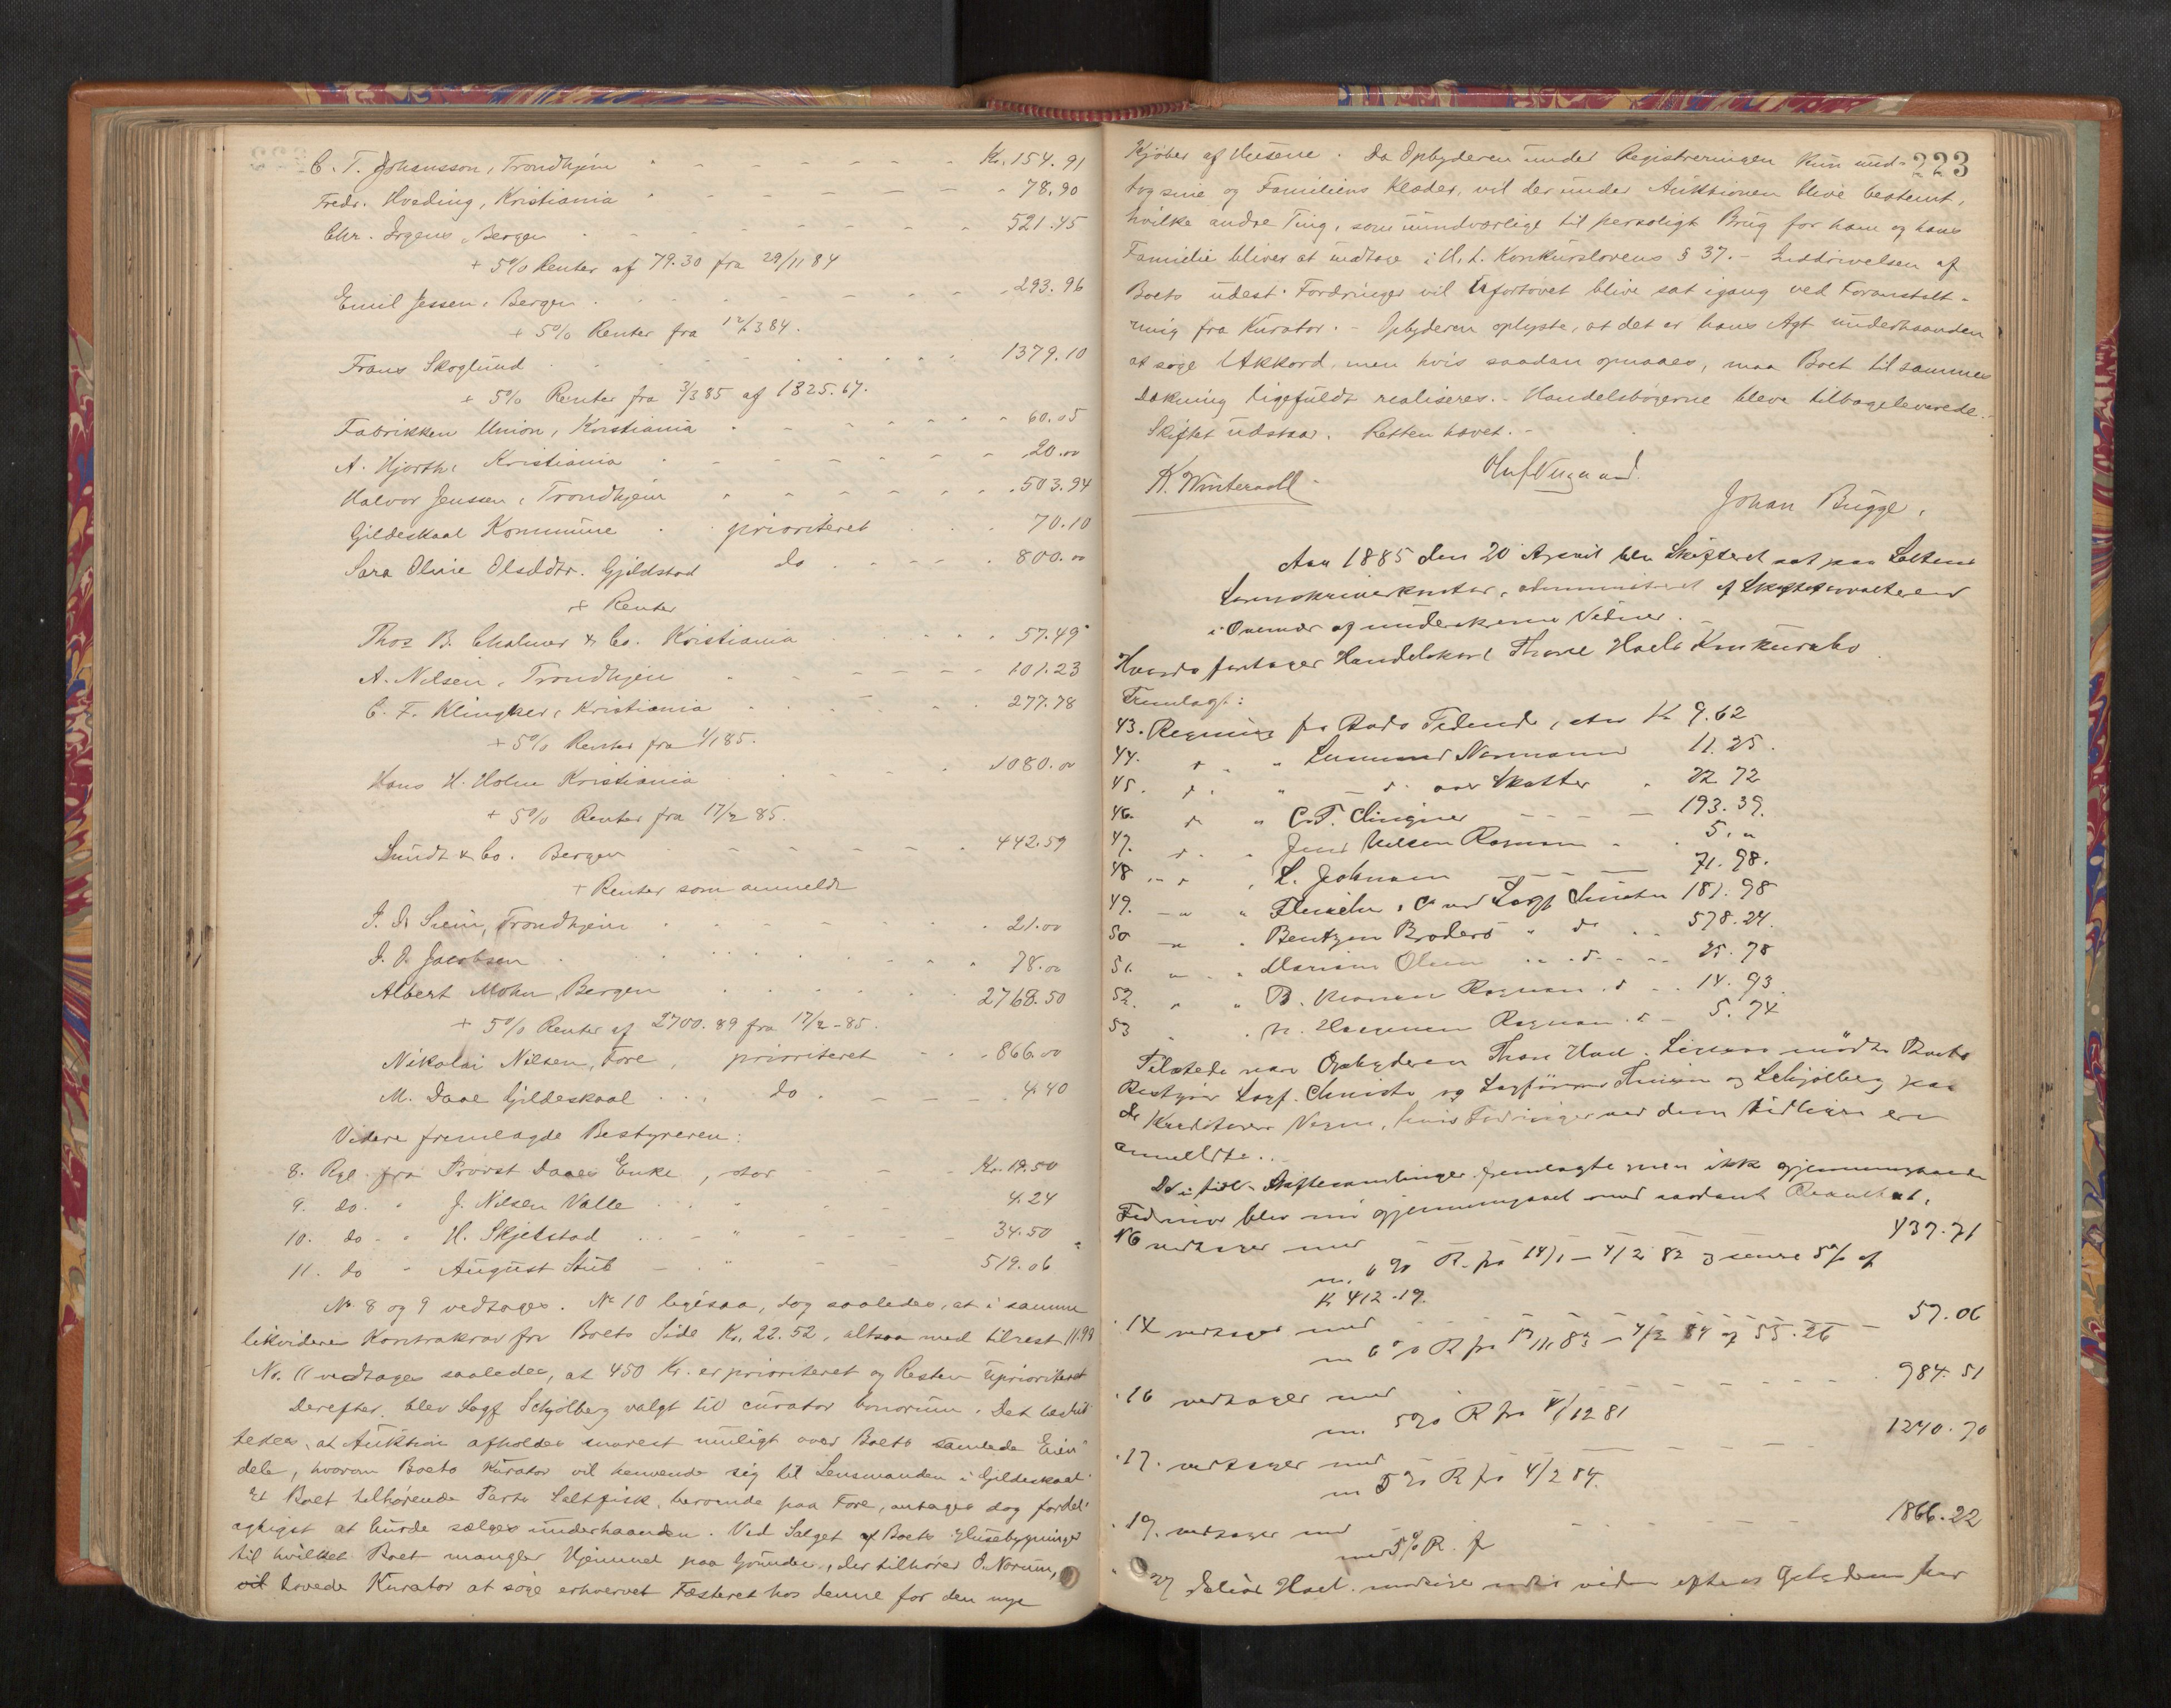 C. T. Johansson, Trondhjem - - - - - - - Kr. 154.91
Fredr. Hveding, Kristiania - - - - - - - 78.90
Chr. Irgens, Bergen - - - - - - - 521.45
+ 5% Renter af 79.30 fra 29/11 84
Emil Jessen, Bergen - - - - - - 293.96
+ 5% Renter fra 12/3 84.
Frans Skoglund - - - - - - 1379.10
+ 5% Renter fra 3/3 85 af 1325.67.
Fabrikken Union, Kristiania - - - - - 60.05
A. Hjorth, Kristiania - - - - - 20.00
Halvor Jenssen, Trondhjem - - - - - 503.94
Gildeskaal Kommune - prioriteret - - - 70.10
Sara Oline Olsdtr. Gjeldstad do - - - - 800.00
+ Renter
Thos B. Chalmer & Co. Kristiania - - - - 57.49
A. Nilsen, Trondhjem - - - - - 101.23
C. F. Klingker, Kristiania - - - - - 277.78
+ 5% Renter fra 1/1 85.
Hans H. Holm Kristiania - - - - 1080.00
+ 5% Renter fra 17/2 85.
Sundt & Co. Bergen - - - - - 442.59
+ Renter som anmeldt
I. D. Sieni, Trondhjem - - - - - 21.00
I. D. Jacobsen - - - - - 78.00
Albert Mohn, Bergen - - - - - 2768.50
+ 5% Renter af 2700.89 fra 17/2 - 85.
Nikolai Nilsen, Fore, prioriteret - - - 866.00
M. Daae Gildeskaal - - do - - - - 4.40
Videre fremlagde Bestyreren:
8. Rgl. fra Provst Daaes Enke, stor - - - Kr. 18.50
9. do. " J. Nilsen Valle - - - 4.24
10. do - " H. Skjelstad - - " - - - 34.50
11. do " August Stub - " - - 519.06
No 8 og 9 vedtoges. No 10 ligesaa, dog saaledes, at i samme
likvideres Kontrakrav fra Boets Side Kr. 22.52, altsaa med tilrest 11.98
No. 11 vedtages saaledes, at 450 Kr. er prioriteret og Resten uprioriteret
Derefter blev Sagf. Schjølberg valgt til curator bonorum. Det beslut
tedes, at Auktion afholdes snarest muligt over Boets samlede Eien
dele, hvorom Boets Kurator vil henvende sig til Lensmanden i Gildeskaal.
Et Boet tilhørende Parti Saltfisk, beroende paa Fore, antages dog fordel
agtigst at burde sælges underhaanden. Ved Salget af Boets Husebygninger
til hvilket Boet mangler Hjemmel paa Grunden, der tilhører O. Norum,
vil lovede Kurator at søge erhvervet Fæsteret hos denne for den nye
223
Kjøber af Husene. Da Opbyderen under Registreringen kun und-
tog sine og Familiens Klæder, vil der under Auktionen blive bestemt,
hvilke andre Ting, som uundværlige til personligt Brug for ham og hans
Familie bliver at undtage i H. t. Konkurslovens § 37. - Inddrivelsen af
Boets udest. Fordringer vil ufortøvet blive sat igang ved Foranstalt-
ning fra Kurator. - Opbyderen oplyste, at det er hans Agt underhaanden
at søge Akkord, men hvis saadan opnaaes, maa Boet til sammes
Dækning ligefuldt realiseres. - Handelsbøgerne bleve tilbageleverede. -
Skiftet udstaar. Retten hævet. -
Johan Bugge.
Aar 1885 den 20 April blev Skifteret sat paa Saltens
Sorenskriverkontor, administreret af Skifteforvalteren
i Overvær af underskrevne Vidner.
Hvorda foretages Handelskarl Thore Hoels Konkursbo
Fremlagt:
43. Regning fra Bodø Tidende, stor Kr 9.62
44. " " Lensmand Normann 11.25.
45. " " - d. over Skatter " 22 72
46. " " C. F. Clingner - - - - 193.39.
47. " " Jens Nilsen Rognan - - 5.00
48 " " L. Johnsen - - - 71.98.
49. - " " Fleischer, C ved Sagf Christie 181.98
50 - " " Bentzen Brødero " do - - 578.24.
51. " - " Marius Olsen " - d - - - 25.78
52. " " B. Rognan . d - - 14.93.
53 " " N. Rognan . d - 5.74
Tilstede var Opbyderen Thore Hoel. Ligesaa mødte Boets
Bestyrer Sagf. Christie og Sagførerne og Schjølberg paa
de Kreditorers Vegne, hvis Fordringer ved dem tidligere er
anmeldte..
De i tidl. Skiftesamlinger fremlagte men ikke gjennemgaaede
Fordringer blev nu gjennemgaaet med saadant Resultat.
vedtages med 437.71
m. 6% R. fra 18/1 - 4/2 82 3 senere 5% af
Kr 412.19.
14 vedtages med - - - - - - 57.06
m 6% R fra 13/11 83 - 4/2 84 af 55.26 -
16 vedtages med - - - - - - 984.51
m. 5% R fra 4/12 81
17. vedtages med - - - - - - 1240.70
m 5% R fra 4/2 84.
19. vedtages med - - - - - - 1866.22
med 5% R. f
27 Hoel